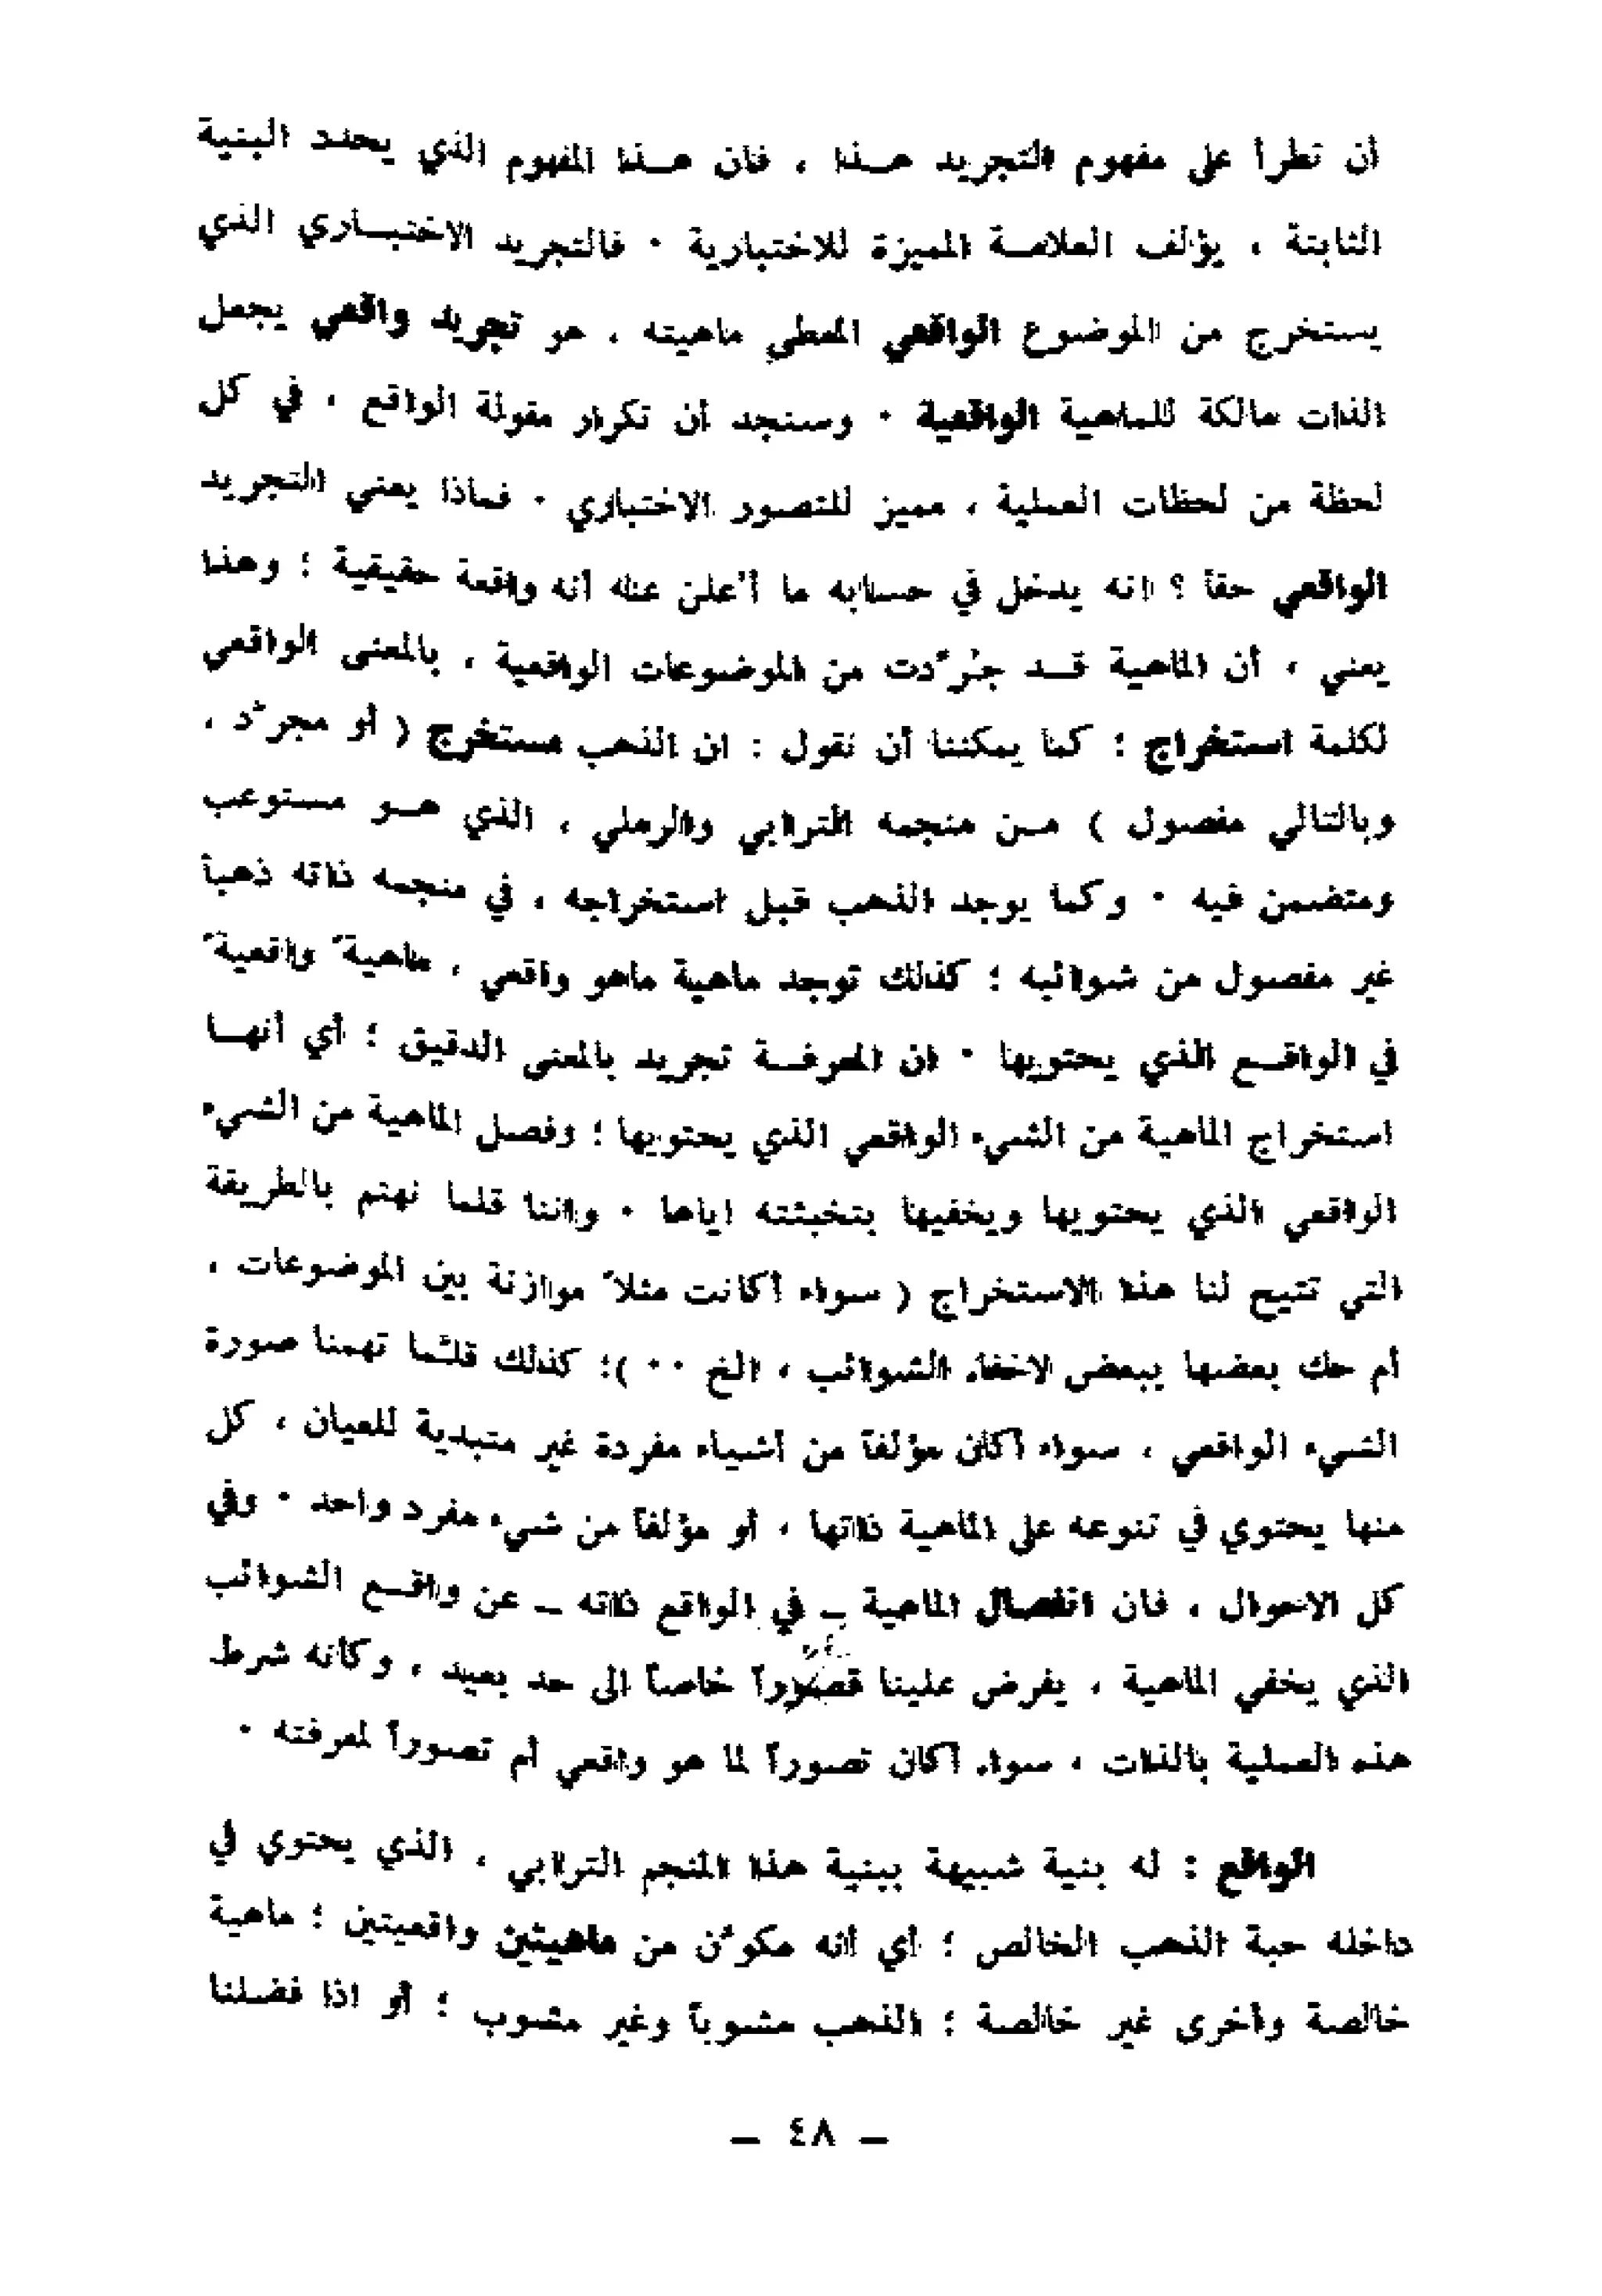 أن تطرأ على مفهوم التجريد هـذا ، فان هـذا المفهوم الذي يحدد البنية
الثابتة ، يؤلف العلامـة المميزة للاختبارية · فالتجريد الاختبـاري الذي
يستخرج من الموضوع الواقعي المعطى ماهيته ، هو تجريد واقعي يجعل
الذات مالكة للماهية الواقعية · وسنجد أن تكرار مقولة الواقع ، في كل
لحظة من لحظات العملية ، مميز للتصور الاختباري · فماذا يعني التجريد
الواقعي حقاً ؟ انه يدخل في حسابه ما أ'علن عنه أنه واقعة حقيقية ؛ وهذا
يعني ، أن الماهية قـد جُرِّدت من الموضوعات الواقعية ، بالمعنى الواقعي
لكلمة استخراج ؛ كما يمكننا أن نقول : ان الذهب مستخرج ( أو مجرَّد ،
وبالتالي مفصول ) مـن منجمه الترابي والرملي ، الذي هـو مستوعب
ومتضمن فيه · وكما يوجد الذهب قبل استخراجه ، في منجمه ذاته ذهباً
غير مفصول من شوائبه ؛ كذلك توجد ماهية ماهو واقعي ، ماهيةً واقعيةً
في الواقـع الذي يحتويها · ان المعرفـة تجريد بالمعنى الدقيق ؛ أي أنهـا
استخراج الماهية من الشيء الواقعي الذي يحتويها ؛ وفصل الماهية من الشيء
الواقعي الذي يحتويها ويخفيها بتخبئته اياها · واننا قلما نهتم بالطريقة
التي تتيح لنا هذا الاستخراج ( سواء أكانت مثلاً موازنة بين الموضوعات ،
أم حك بعضها ببعض لاخفاء الشوائب ، الخ · · )؛ كذلك قلـَّما تهمنا صورة
الشيء الواقعي ، سواء أكان مؤلفاً من أشياء مفردة غير متبدية للعيان ، كل
منها يحتوي في تنوعه على الماهية ذاتها ، أو مؤلفاً من شيء مفرد واحد · وفي
كل الاحوال ، فان انفصال الماهية ـ في الواقع ذاته ـ عن واقـع الشوائب
الذي يخفي الماهية ، يفرض علينا تصوراً خاصاً الى حد بعيد ، وكأنه شرط
هذه العملية بالذات ، سواء أكان تصوراً لما هو واقعي أم تصوراً لمعرفته ·
الواقع : له بنية شبيهة ببنية هذا المنجم الترابي ، الذي يحتوي في
داخله حبة الذهب الخالص ؛ أي أنه مكوَّن من ماهيتين واقعيتين ؛ ماهية
خالصة وأخرى غير خالصة ؛ الذهب مشوباً وغير مشوب ؛ أو اذا فضلنا
ـ ٤٨ ـ